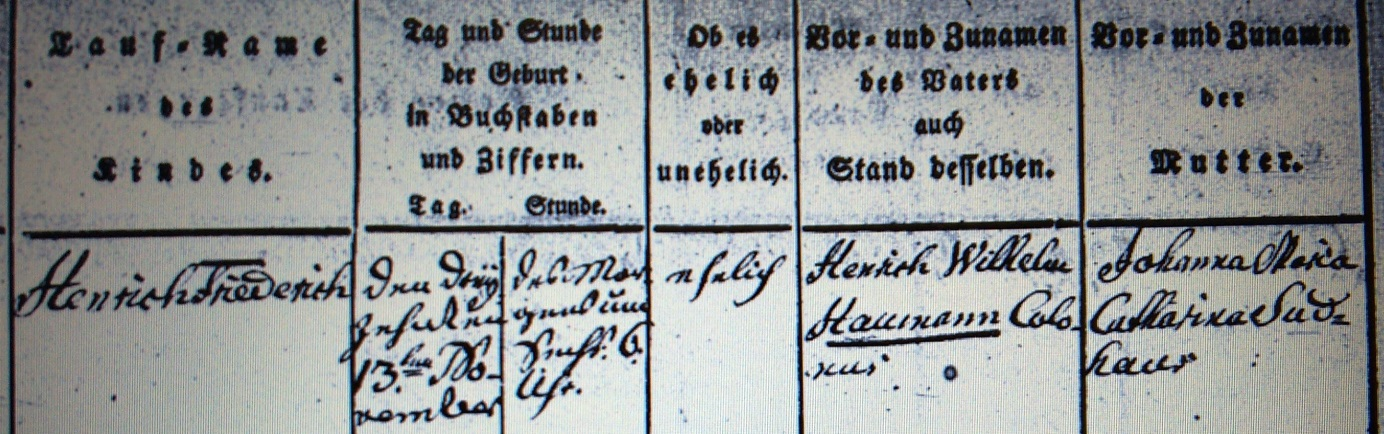 Tauf-Name
des
Kindes.
Tag und Stunde
der Geburt
in Buchstaben
und Ziffern.
Tag. Stunde.
Ob es
ehelich
oder
unehelich.
Vor- und Zunamen
des Vaters
auch
Stand desselben.
Vor- und Zunamen
der
Mutter.
Henrich Friederich
den drey
zehnten
13.ten No-
vember
des Mor
gens um
Sechs. 6.
Uhr.
ehelich
Henrich Wilhelm
Haumann Colo-
nus
Johanna Maria
Catharina Sud-
haus